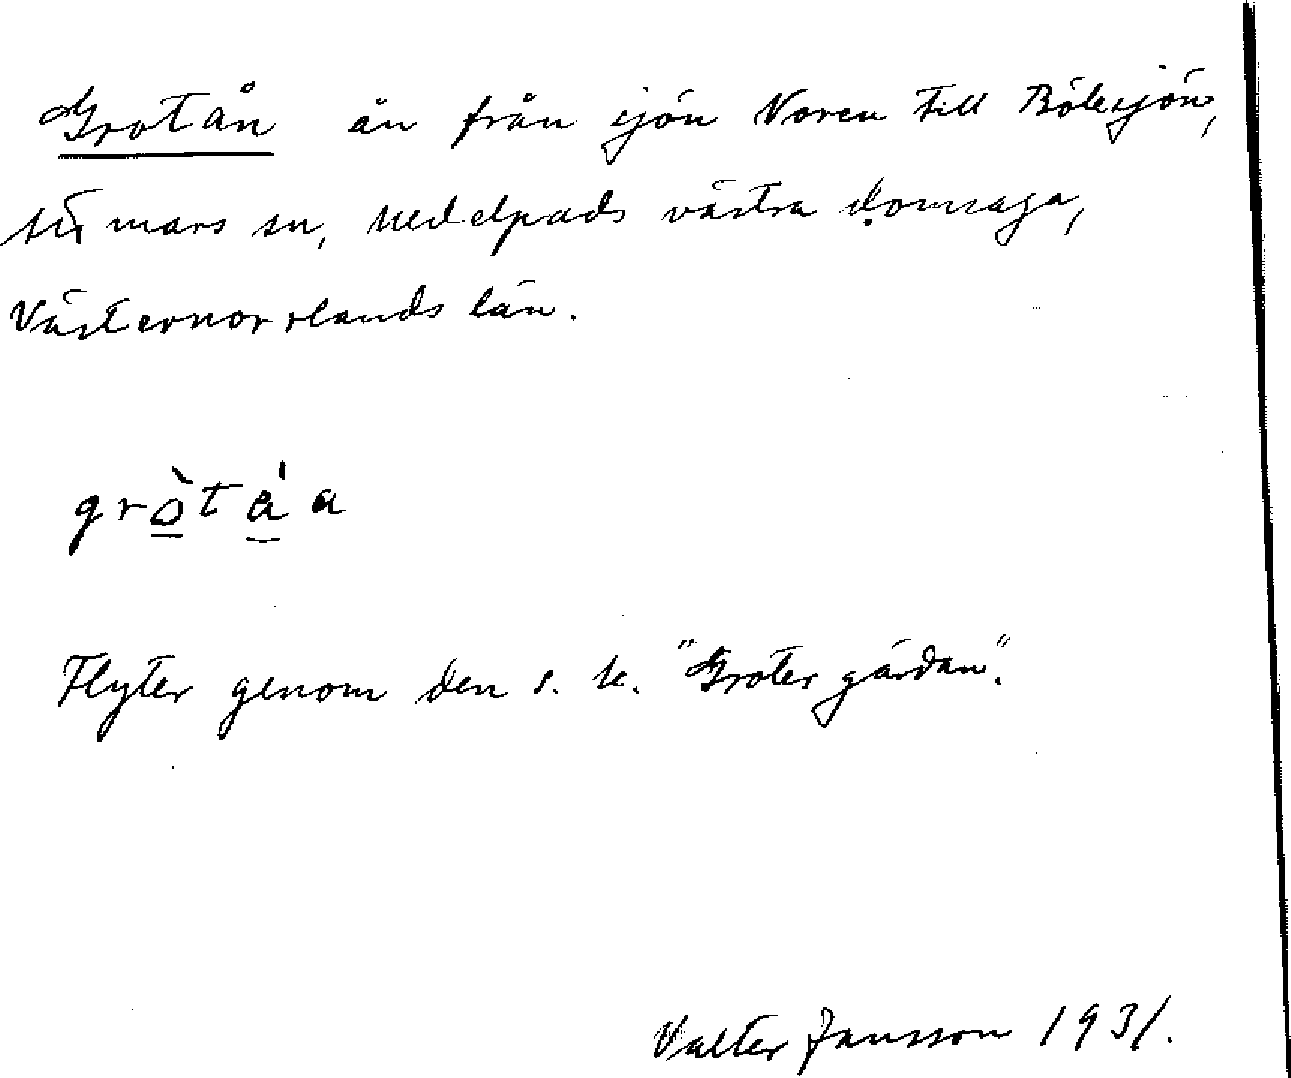 Grotån ån från sjön Noren till Bölesjön,
Attmars sn, Medelpads västra domsaga,
Västernorrlands län.
gròtá a
Flyter genom den s. k. "Groter gärdan".
Valter Jansson 1931.